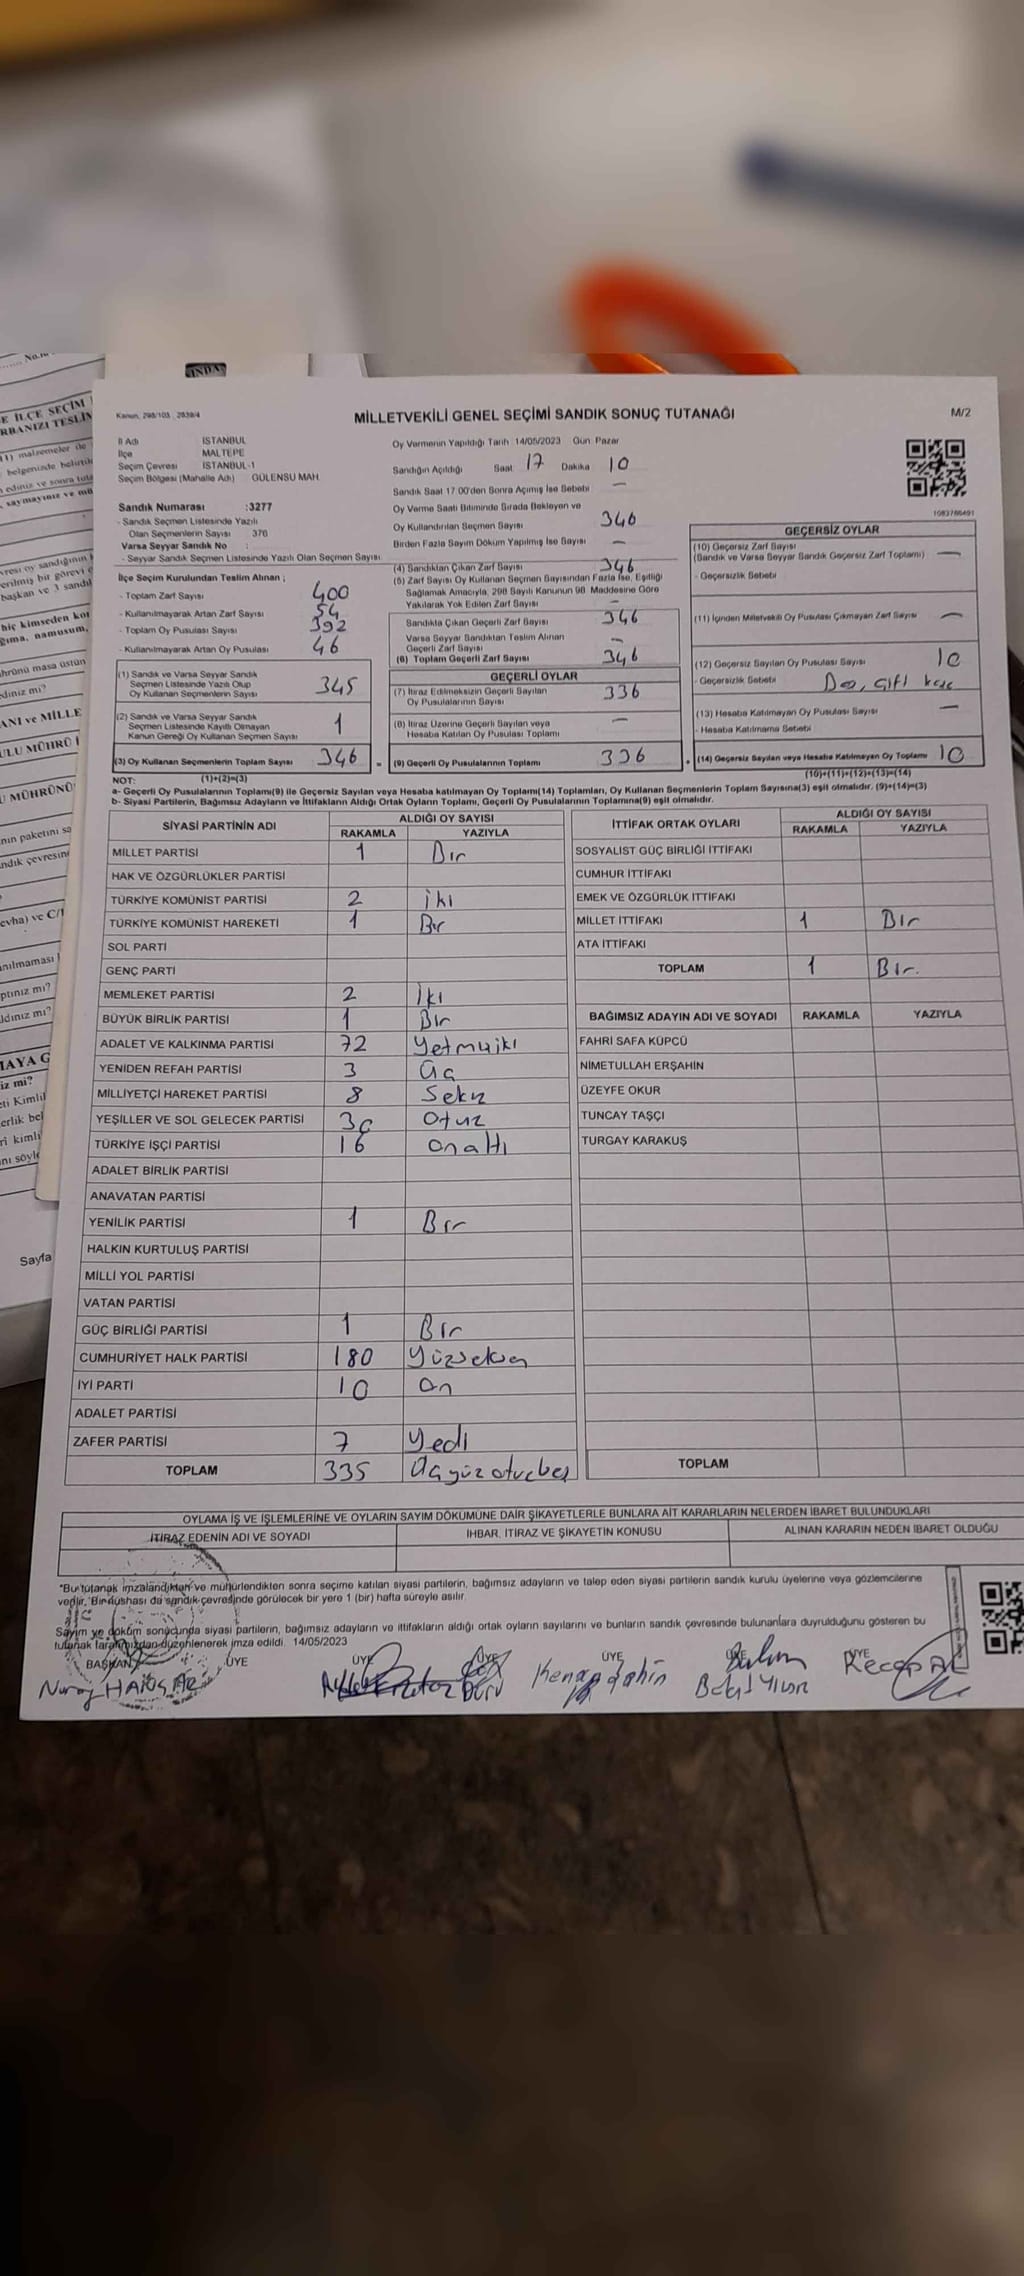 MİLLETVEKİLİ GENEL SEÇİMİ SANDIK SONUÇ TUTANAĞI
M/2
İl Adı İSTANBUL
İlçe MALTEPE
Seçim Çevresi İSTANBUL-1
Seçim Bölgesi (Mahalle Adı) GÜLENSU MAH.
Sandık Numarası :3277
- Sandık Seçmen Listesinde Yazılı
Olan Seçmenlerin Sayısı : 376
Varsa Seyyar Sandık No :
- Seyyar Sandık Seçmen Listesinde Yazılı Olan Seçmen Sayısı:
Oy Vermenin Yapıldığı Tarih 14/05/2023 Gün Pazar
Sandığın Açıldığı Saat 17 Dakika 10
Sandık Saat 17.00'den Sonra Açımış İse Sebebi —
Oy Verme Saati Bitiminde Sırada Bekleyen ve
Oy Kullandırılan Seçmen Sayısı 346
Birden Fazla Sayım Döküm Yapılmış İse Sayısı —
1083786491
İlçe Seçim Kurulundan Teslim Alınan ;
- Toplam Zarf Sayısı 400
- Kullanılmayarak Artan Zarf Sayısı 54
- Toplam Oy Pusulası Sayısı 392
- Kullanılmayarak Artan Oy Pusulası 46
(1) Sandık ve Varsa Seyyar Sandık
Seçmen Listesinde Yazılı Olup
Oy Kullanan Seçmenlerin Sayısı 345
(2) Sandık ve Varsa Seyyar Sandık
Seçmen Listesinde Kayıtlı Olmayan
Kanun Gereği Oy Kullanan Seçmen Sayısı 1
(3) Oy Kullanan Seçmenlerin Toplam Sayısı 346
(1)+(2)=(3)
(4) Sandıktan Çıkan Zarf Sayısı 346
(5) Zarf Sayısı Oy Kullanan Seçmen Sayısından Fazla İse, Eşitliği
Sağlamak Amacıyla, 298 Sayılı Kanunun 98. Maddesine Göre
Yakılarak Yok Edilen Zarf Sayısı —
Sandıkta Çıkan Geçerli Zarf Sayısı 346
Varsa Seyyar Sandıktan Teslim Alınan
Geçerli Zarf Sayısı —
(6) Toplam Geçerli Zarf Sayısı 346
GEÇERLİ OYLAR
(7) İtiraz Edilmeksizin Geçerli Sayılan
Oy Pusulalarının Sayısı 336
(8) İtiraz Üzerine Geçerli Sayılan veya
Hesaba Katılan Oy Pusulası Toplamı —
= (9) Geçerli Oy Pusulalarının Toplamı 336
GEÇERSİZ OYLAR
(10) Geçersiz Zarf Sayısı
(Sandık ve Varsa Seyyar Sandık Geçersiz Zarf Toplamı) —
- Geçersizlik Sebebi
(11) İçinden Milletvekili Oy Pusulası Çıkmayan Zarf Sayısı —
(12) Geçersiz Sayılan Oy Pusulası Sayısı 10
- Geçersizlik Sebebi
(13) Hesaba Katılmayan Oy Pusulası Sayısı —
- Hesaba Katılmama Sebebi
+ (14) Geçersiz Sayılan veya Hesaba Katılmayan Oy Toplamı 10
(10)+(11)+(12)+(13)=(14)
NOT:
a- Geçerli Oy Pusulalarının Toplamı(9) ile Geçersiz Sayılan veya Hesaba katılmayan Oy Toplamı(14) Toplamları, Oy Kullanan Seçmenlerin Toplam Sayısına(3) eşit olmalıdır. (9)+(14)=(3)
b- Siyasi Partilerin, Bağımsız Adayların ve İttifakların Aldığı Ortak Oyların Toplamı, Geçerli Oy Pusulalarının Toplamına(9) eşit olmalıdır.
SİYASİ PARTİNİN ADI ALDIĞI OY SAYISI
RAKAMLA YAZIYLA
MİLLET PARTİSİ 1 Bir
HAK VE ÖZGÜRLÜKLER PARTİSİ
TÜRKİYE KOMÜNİST PARTİSİ 2 iki
TÜRKİYE KOMÜNİST HAREKETİ 1 Bir
SOL PARTİ
GENÇ PARTİ
MEMLEKET PARTİSİ 2 İki
BÜYÜK BİRLİK PARTİSİ 1 Bir
ADALET VE KALKINMA PARTİSİ 72 Yetmişiki
YENİDEN REFAH PARTİSİ 3 Üç
MİLLİYETÇİ HAREKET PARTİSİ 8 Sekiz
YEŞİLLER VE SOL GELECEK PARTİSİ 30 Otuz
TÜRKİYE İŞÇİ PARTİSİ 16 onaltı
ADALET BİRLİK PARTİSİ
ANAVATAN PARTİSİ
YENİLİK PARTİSİ 1 Bir
HALKIN KURTULUŞ PARTİSİ
MİLLİ YOL PARTİSİ
VATAN PARTİSİ
GÜÇ BİRLİĞİ PARTİSİ 1 Bir
CUMHURİYET HALK PARTİSİ 180 Yüzseksen
İYİ PARTİ 10 On
ADALET PARTİSİ
ZAFER PARTİSİ 7 Yedi
TOPLAM 335 Üçyüzotuzbeş
İTTİFAK ORTAK OYLARI ALDIĞI OY SAYISI
RAKAMLA YAZIYLA
SOSYALİST GÜÇ BİRLİĞİ İTTİFAKI
CUMHUR İTTİFAKI
EMEK VE ÖZGÜRLÜK İTTİFAKI
MİLLET İTTİFAKI 1 Bir
ATA İTTİFAKI
TOPLAM 1 Bir.
BAĞIMSIZ ADAYIN ADI VE SOYADI RAKAMLA YAZIYLA
FAHRİ SAFA KÜPCÜ
NİMETULLAH ERŞAHİN
ÜZEYFE OKUR
TUNCAY TAŞÇI
TURGAY KARAKUŞ
TOPLAM
OYLAMA İŞ VE İŞLEMLERİNE VE OYLARIN SAYIM DÖKÜMÜNE DAİR ŞİKAYETLERLE BUNLARA AİT KARARLARIN NELERDEN İBARET BULUNDUKLARI
İTİRAZ EDENİN ADI VE SOYADI İHBAR, İTİRAZ VE ŞİKAYETİN KONUSU ALINAN KARARIN NEDEN İBARET OLDUĞU
*Bu tutanak imzalandıktan ve mühürlendikten sonra seçime katılan siyasi partilerin, bağımsız adayların ve talep eden siyasi partilerin sandık kurulu üyelerine veya gözlemcilerine
verilir. Bir nüshası da sandık çevresinde görülecek bir yere 1 (bir) hafta süreyle asılır.
Sayım ve döküm sonucunda siyasi partilerin, bağımsız adayların ve ittifakların aldığı ortak oyların sayılarını ve bunların sandık çevresinde bulunanlara duyrulduğunu gösteren bu
tutanak tarafımızdan düzenlenerek imza edildi. 14/05/2023
BAŞKAN ÜYE ÜYE ÜYE ÜYE ÜYE ÜYE
Kenan Şahin